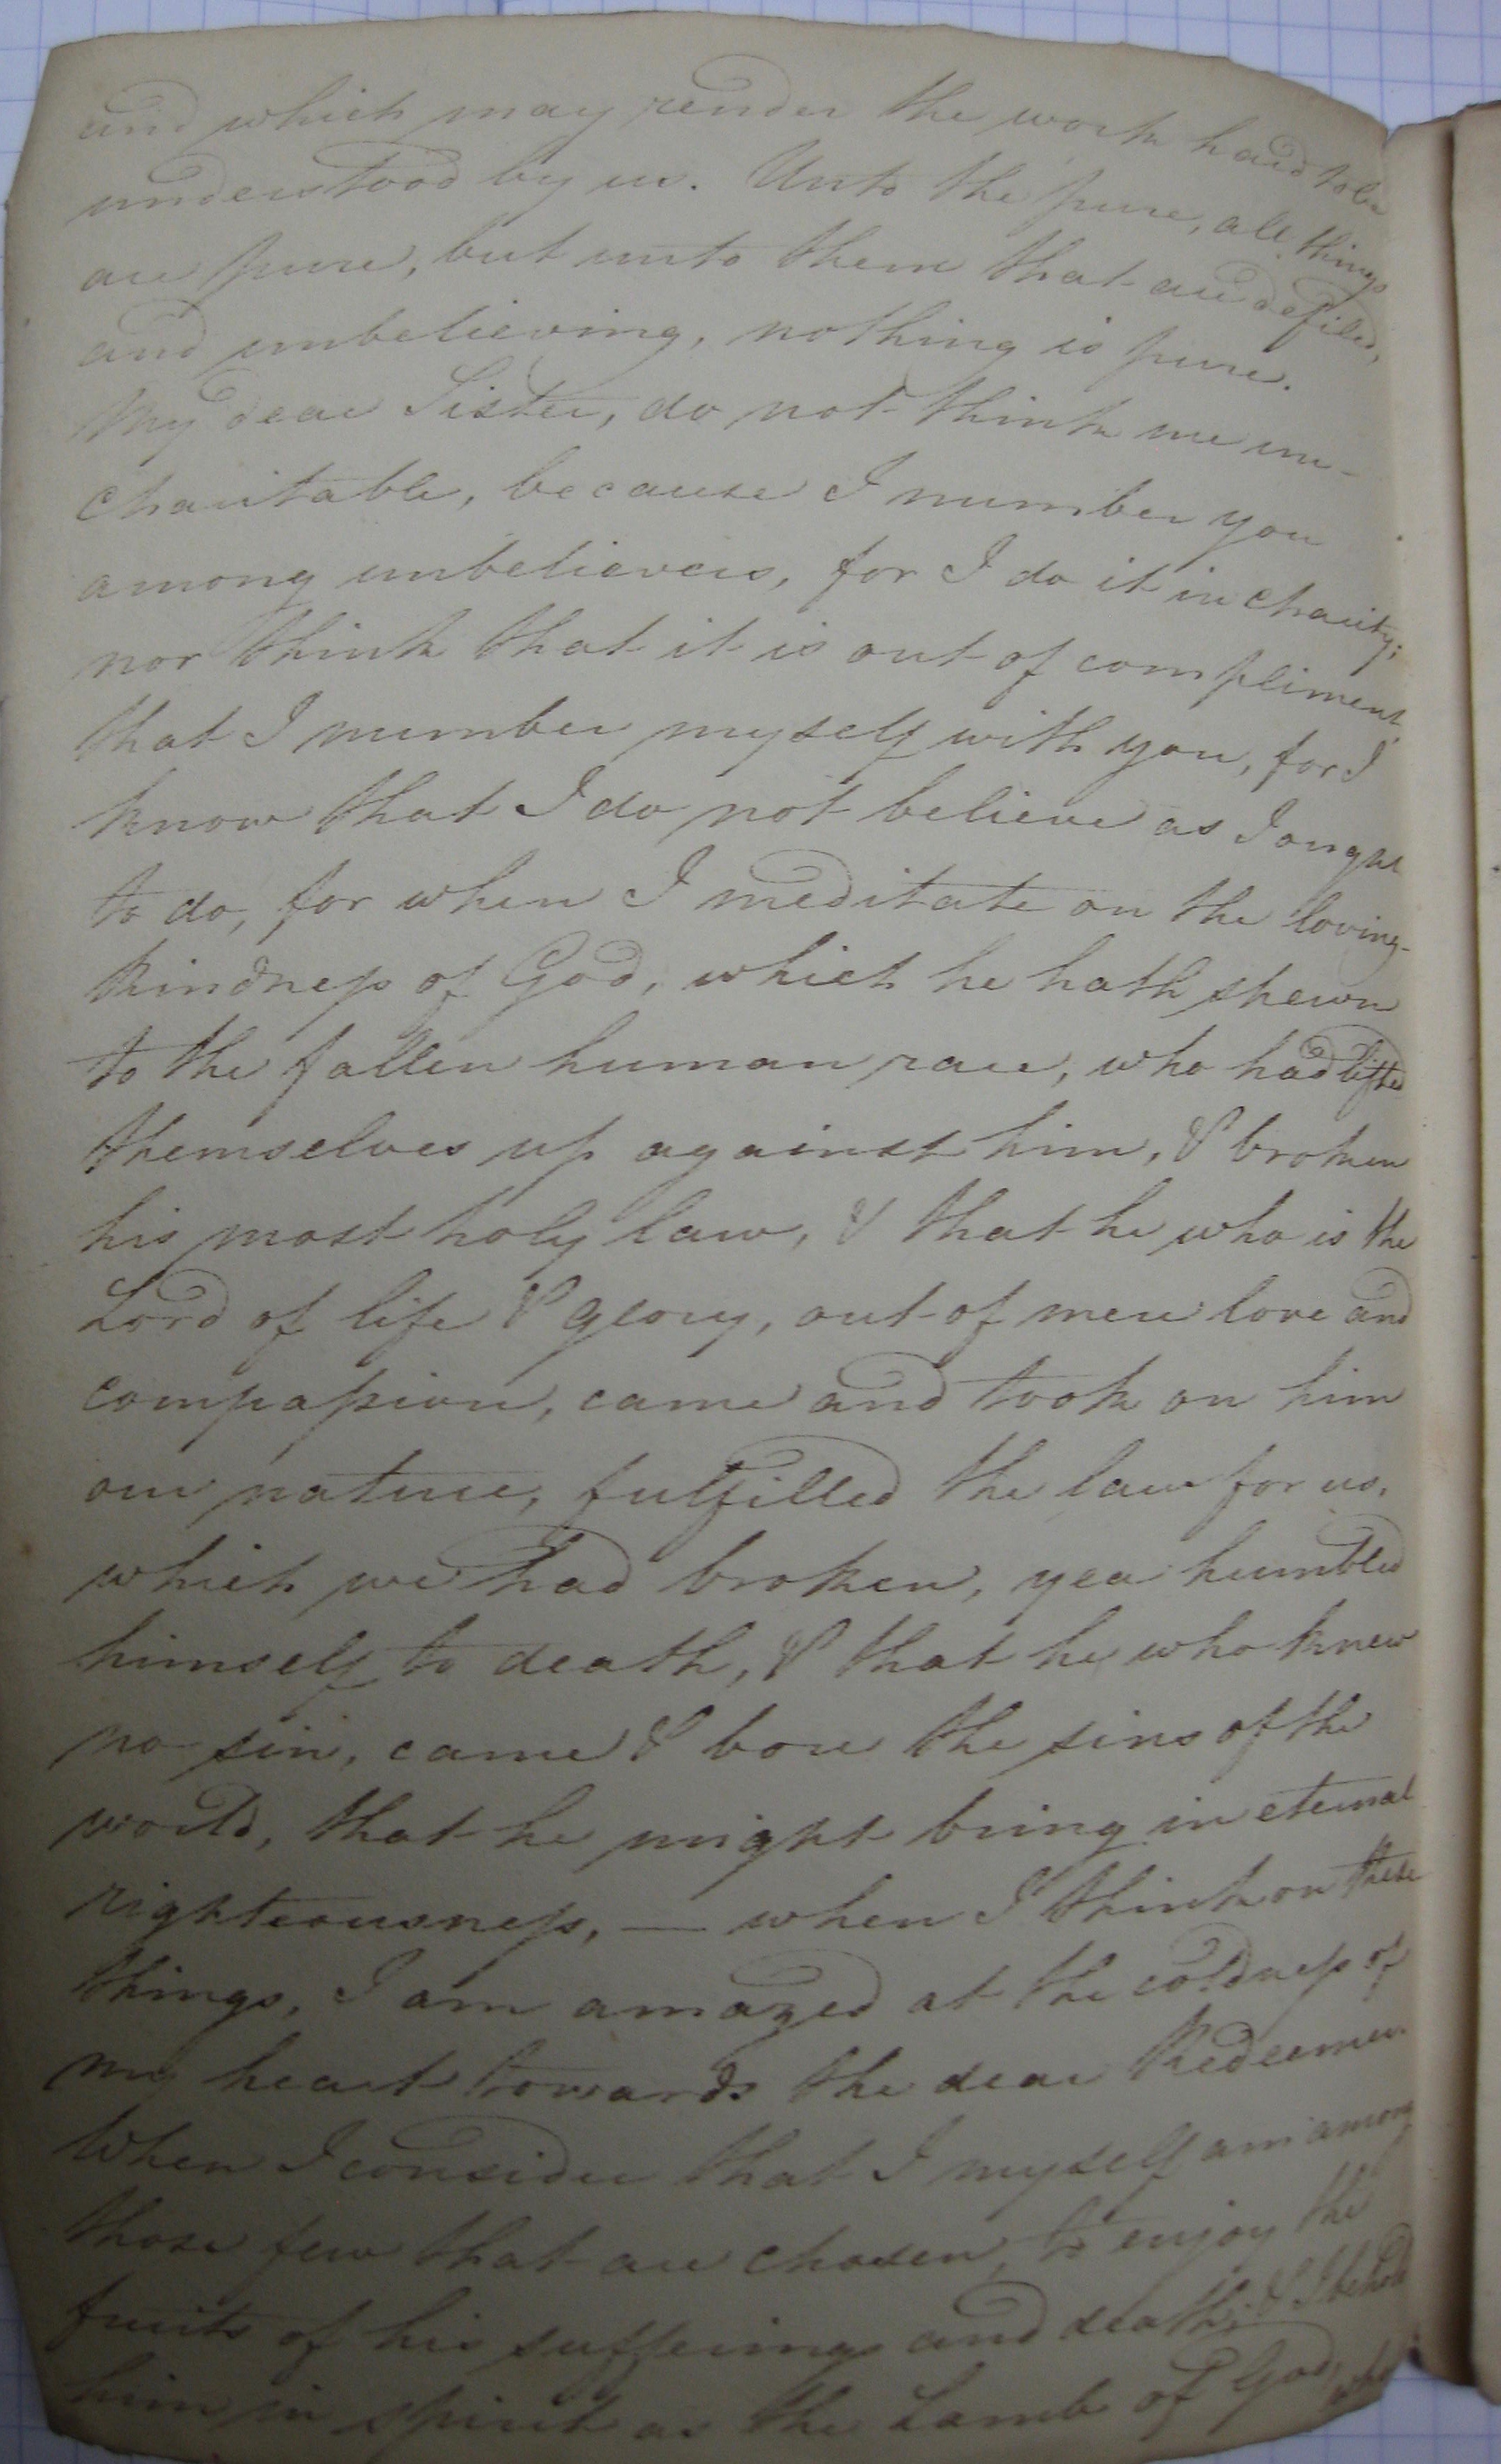 and which may render the work hard to be
understood by us. Unto the pure, all things
are pure, but unto them that are defiled,
and unbelieving, nothing is pure.
My dear Sister, do not think me un-
charitable, because I number you
among unbelievers, for I do it in charity;
nor think that it is out of compliment,
that I number myself with you, for I
know that I do not believe as I ought
to do, for when I meditate on the loving-
kindness of God, which he hath shewn
to the fallen human race, who had lifted
themselves up against him, & broken
his most holy law, & that he who is the
Lord of life & glory, out of mere love and
compassion, came and took on him
our nature, fulfilled the law for us,
which we had broken, yea humbled
himself to death, & that he who knew
no sin, came & bore the sins of the
world, that he might bring in eternal
righteousness, — when I think on these
things, I am amazed at the coldness of
my heart towards the dear Redeemer.
When I consider that I myself am among
those few that are chosen, to enjoy the
fruits of his sufferings and death, & I behold
him in spirit as the Lamb of God,